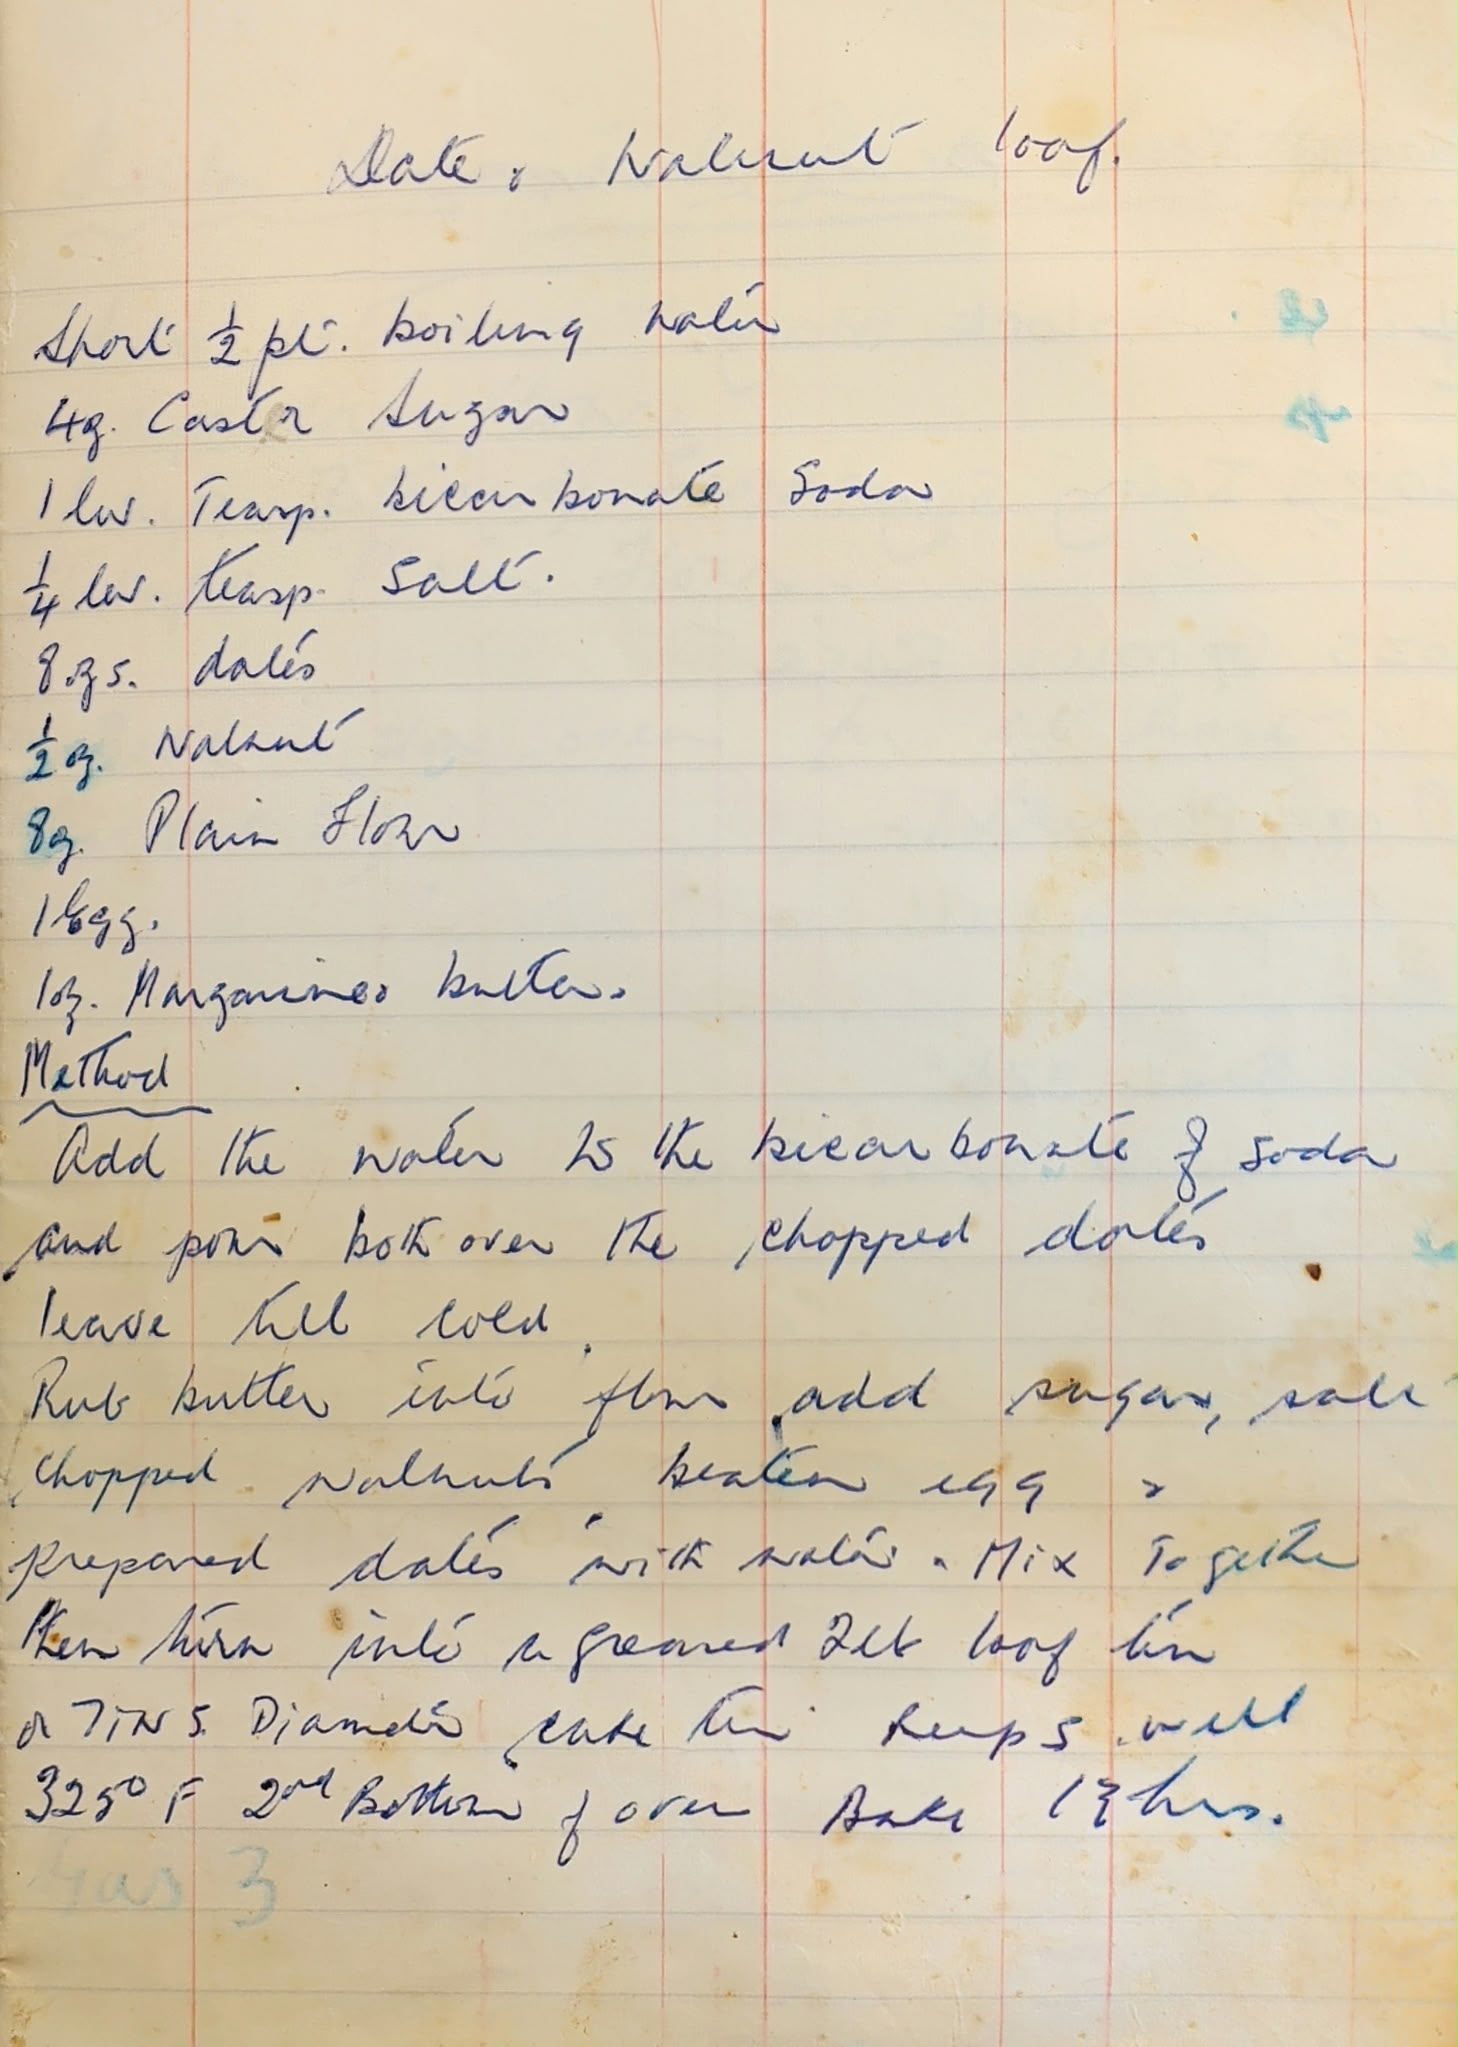 Date & Walnut loaf.
Short ½ pt. boiling water
4oz. Castor Sugar
1 lev. Teasp. bicarbonate Soda
¼ lev. teasp. Salt.
8 ozs. dates
½ oz. Walnut
8oz. Plain Flour
1 Egg.
1oz. Margarine or butter.
Method
Add the water to the bicarbonate of soda
and pour both over the chopped dates
leave till cold.
Rub butter into flour, add sugar, salt
chopped walnuts, beaten egg &
prepared dates with water. Mix Together
then turn into a greased 2lb loaf tin
or 7 INS. Diameter cake tin keeps well
325° F 2nd Bottom of oven Bake hrs.
Gas 3